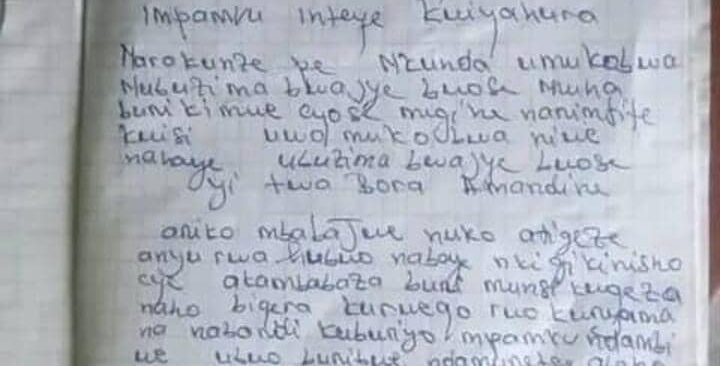 Impamvu inteye kwiyahura
Narokunze pe Nkunda umukobwa
Mubuzima bwajye bwose Muha
bunikimwe cyose migihe nanimfite
kwisi uwo mukobwa niwe
nahaye ubuzima bwajye bwose
yitwa Bora Amandine
ariko mbabajwe nuko atigeze
anyurwa hubwo nabaye nkigikinisho
cye akambabaza buri munsi kugeza
naho bigera kurwego rwo kuryama
na nabondi kuburiyo mpamvu
we ubwo